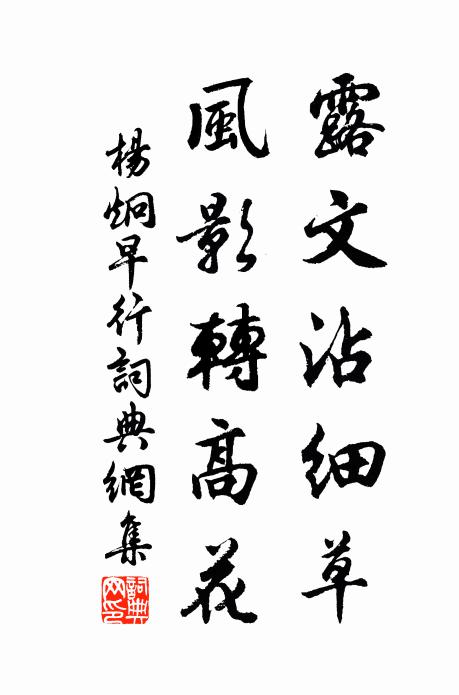 露文沾細草
風影轉高花
楊炯早行詞典網集
詞典网印